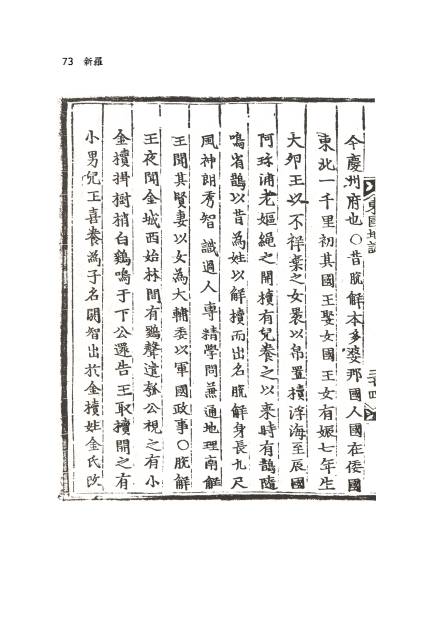 73 新羅
東國地誌
三十四
今慶州府也○昔脫解本多婆那國人國在倭國
東北一千里初其國王娶女國王女有娠七年生
大卵王以不祥棄之女裹以帛置櫝浮海至辰國
阿珍浦老嫗繩之開櫝有兒養之以來時有鵲隨
鳴省鵲以昔爲姓以解櫝而出名脫解身長九尺
風神朗秀智識過人專精學問兼通地理南解
王聞其賢妻以女爲大輔委以軍國政事○脫解
王夜聞金城西始林間有鷄聲遣瓠公視之有小
金櫝掛樹梢白鷄鳴于下公還告王取櫝開之有
小男兒王喜養爲子名閼智出於金櫝姓金氏改